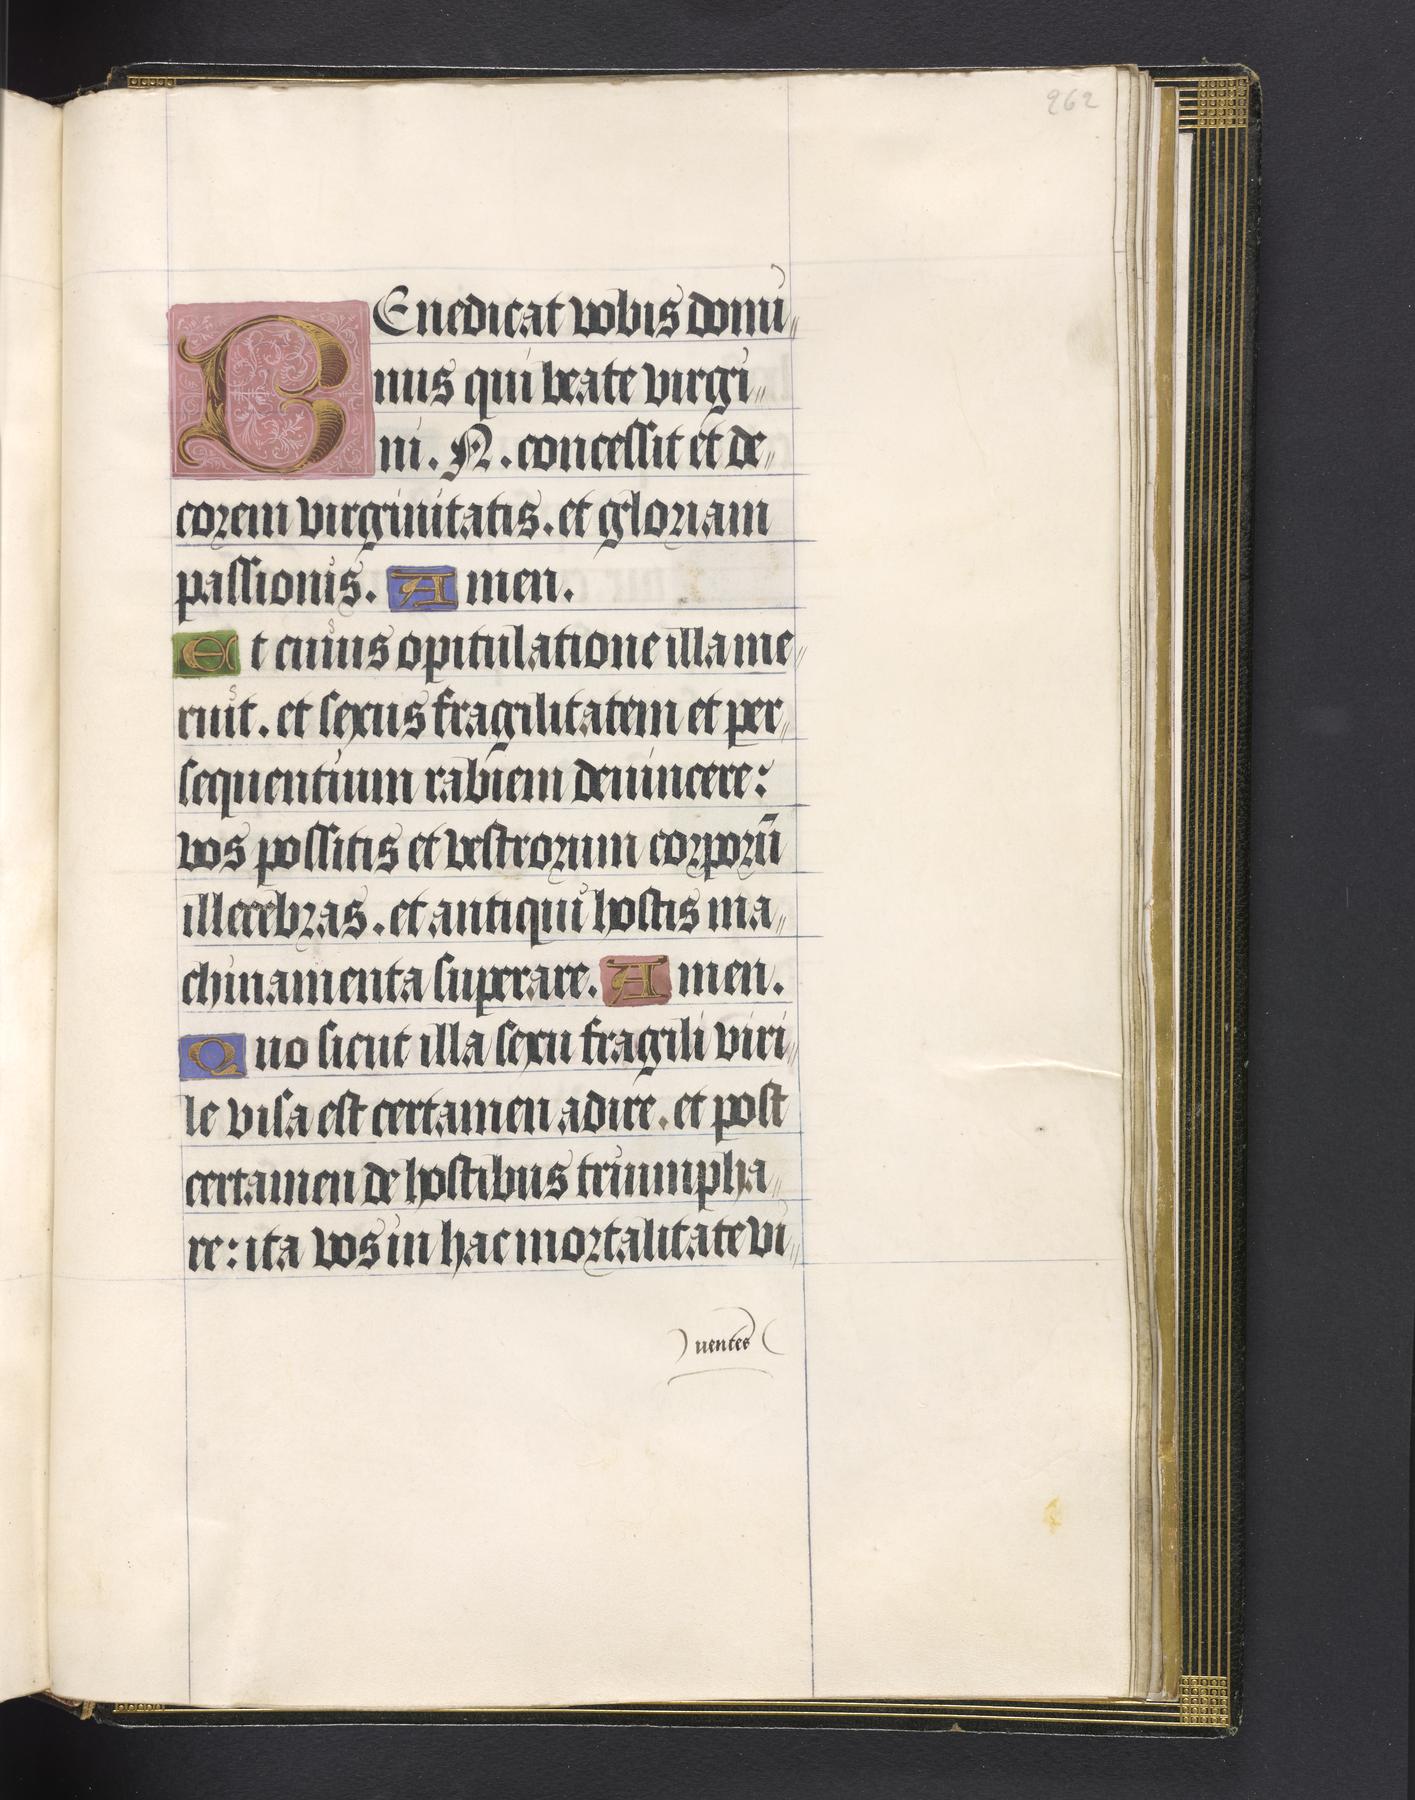 262
BEnedicat vobis domi„
nus qui beate virgi„
ni. N. concessit et de„
corem virginitatis. et gloriam
passionis. Amen.
Et cuius opitulatione illa me„
ruit. et sexus fragilitatem et per„
sequentium rabiem deuincere:
vos possitis et vestrorum corporū
illecebras. et antiqui hostis ma„
chinamenta superare. Amen.
Quo sicut illa sexu fragili viri„
le visa est certamen adire. et post
certamen de hostibus triumpha„
re: ita vos in hac mortalitate vi„
uentes